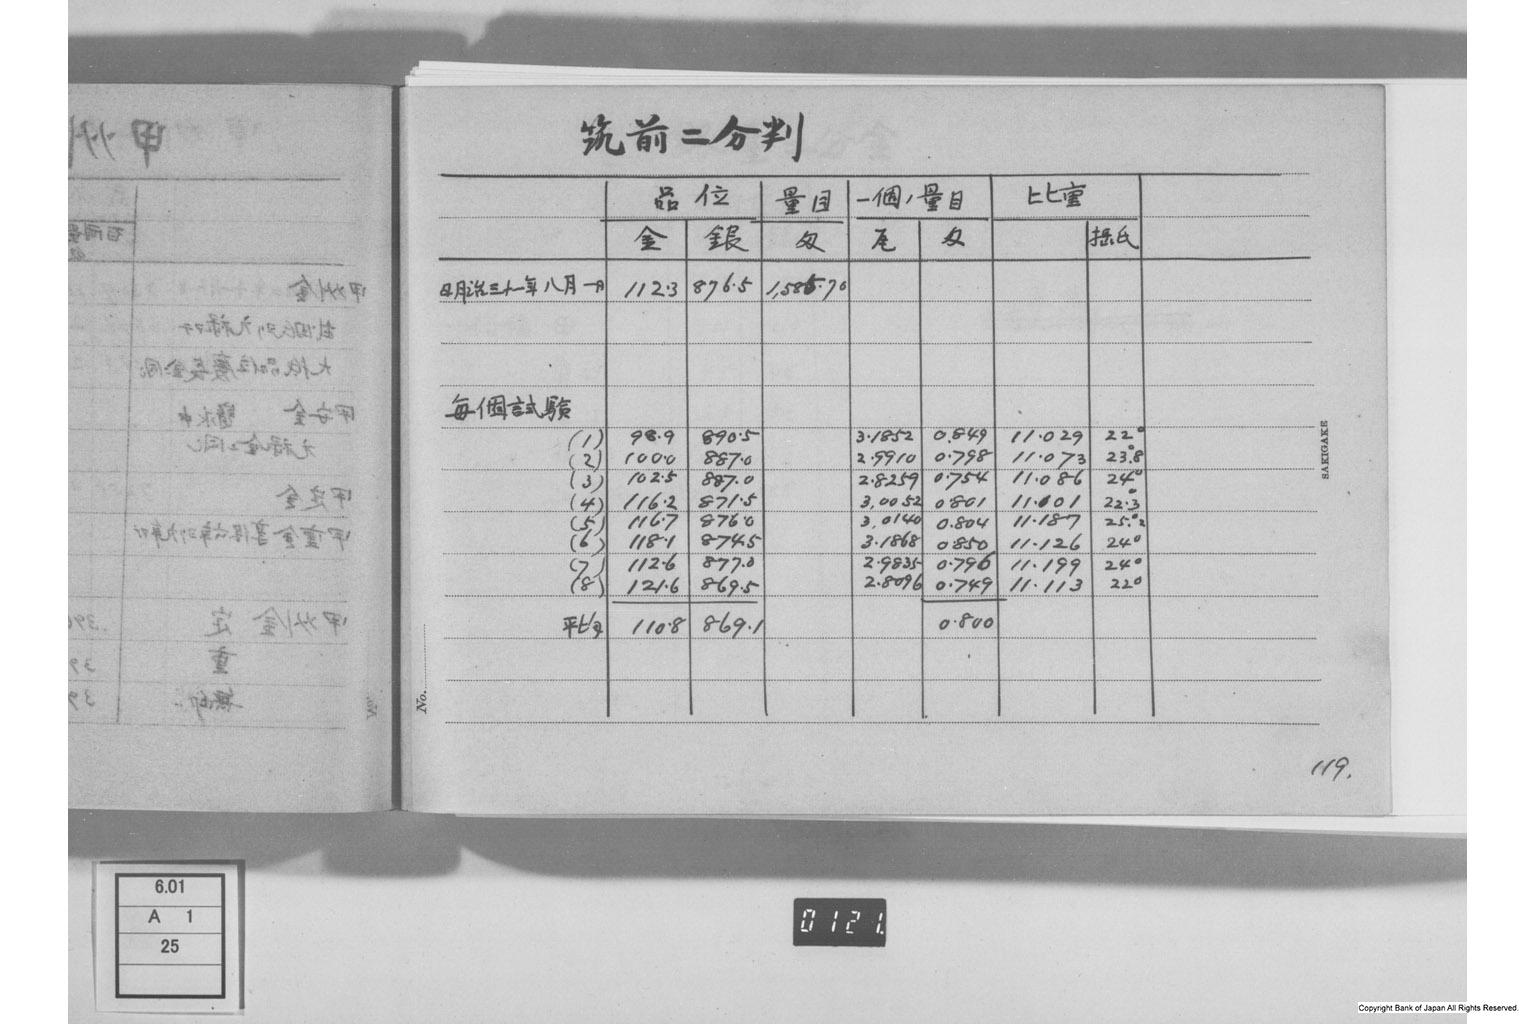 筑前二分判
品位 量目 一個ノ量目 比重
金 銀 匁 瓦 匁 摂氏
明治三十一年八月一日 112.3 876.5 1,585.70
毎個試験
(1) 98.9 890.5 3.1852 0.849 11.029 22°
(2) 100.0 887.0 2.9910 0.798 11.073 23.8°
(3) 102.5 887.0 2.8259 0.754 11.086 24°
(4) 116.2 871.5 3,0052 0.801 11.101 22.3°
(5) 116.7 876.0 3,0140 0.804 11.187 25.°2
(6) 118.1 874.5 3.1868 0.850 11.126 24°
(7) 112.6 877.0 2.9835 0.796 11.199 24°
(8) 121.6 869.5 2.8096 0.749 11.113 22°
平均 110.8 869.1 0.800
No.
SAKIGAKE
119.
甲州
甲州金
甲安金
甲定金
甲州金 定
重
無印
6.01
A 1
25
0121.
Copyright Bank of Japan All Rights Reserved.